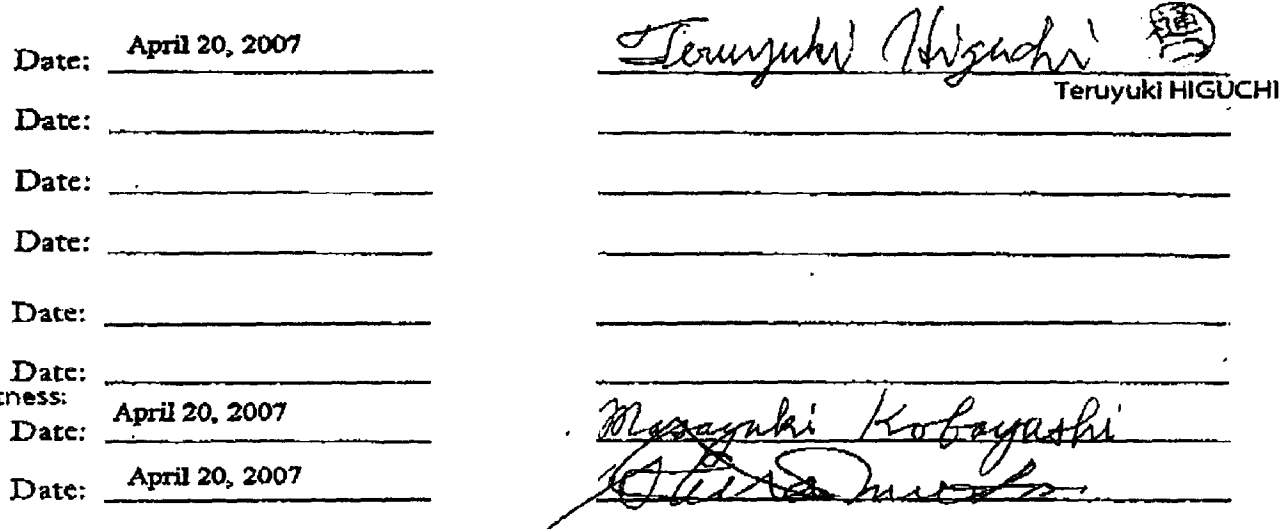 Date: April 20, 2007 Teruyuki Higuchi
Teruyuki HIGUCHI
Date:
Date:
Date:
Date:
Date:
tness:
Date: April 20, 2007 Masayuki Kobayashi
Date: April 20, 2007